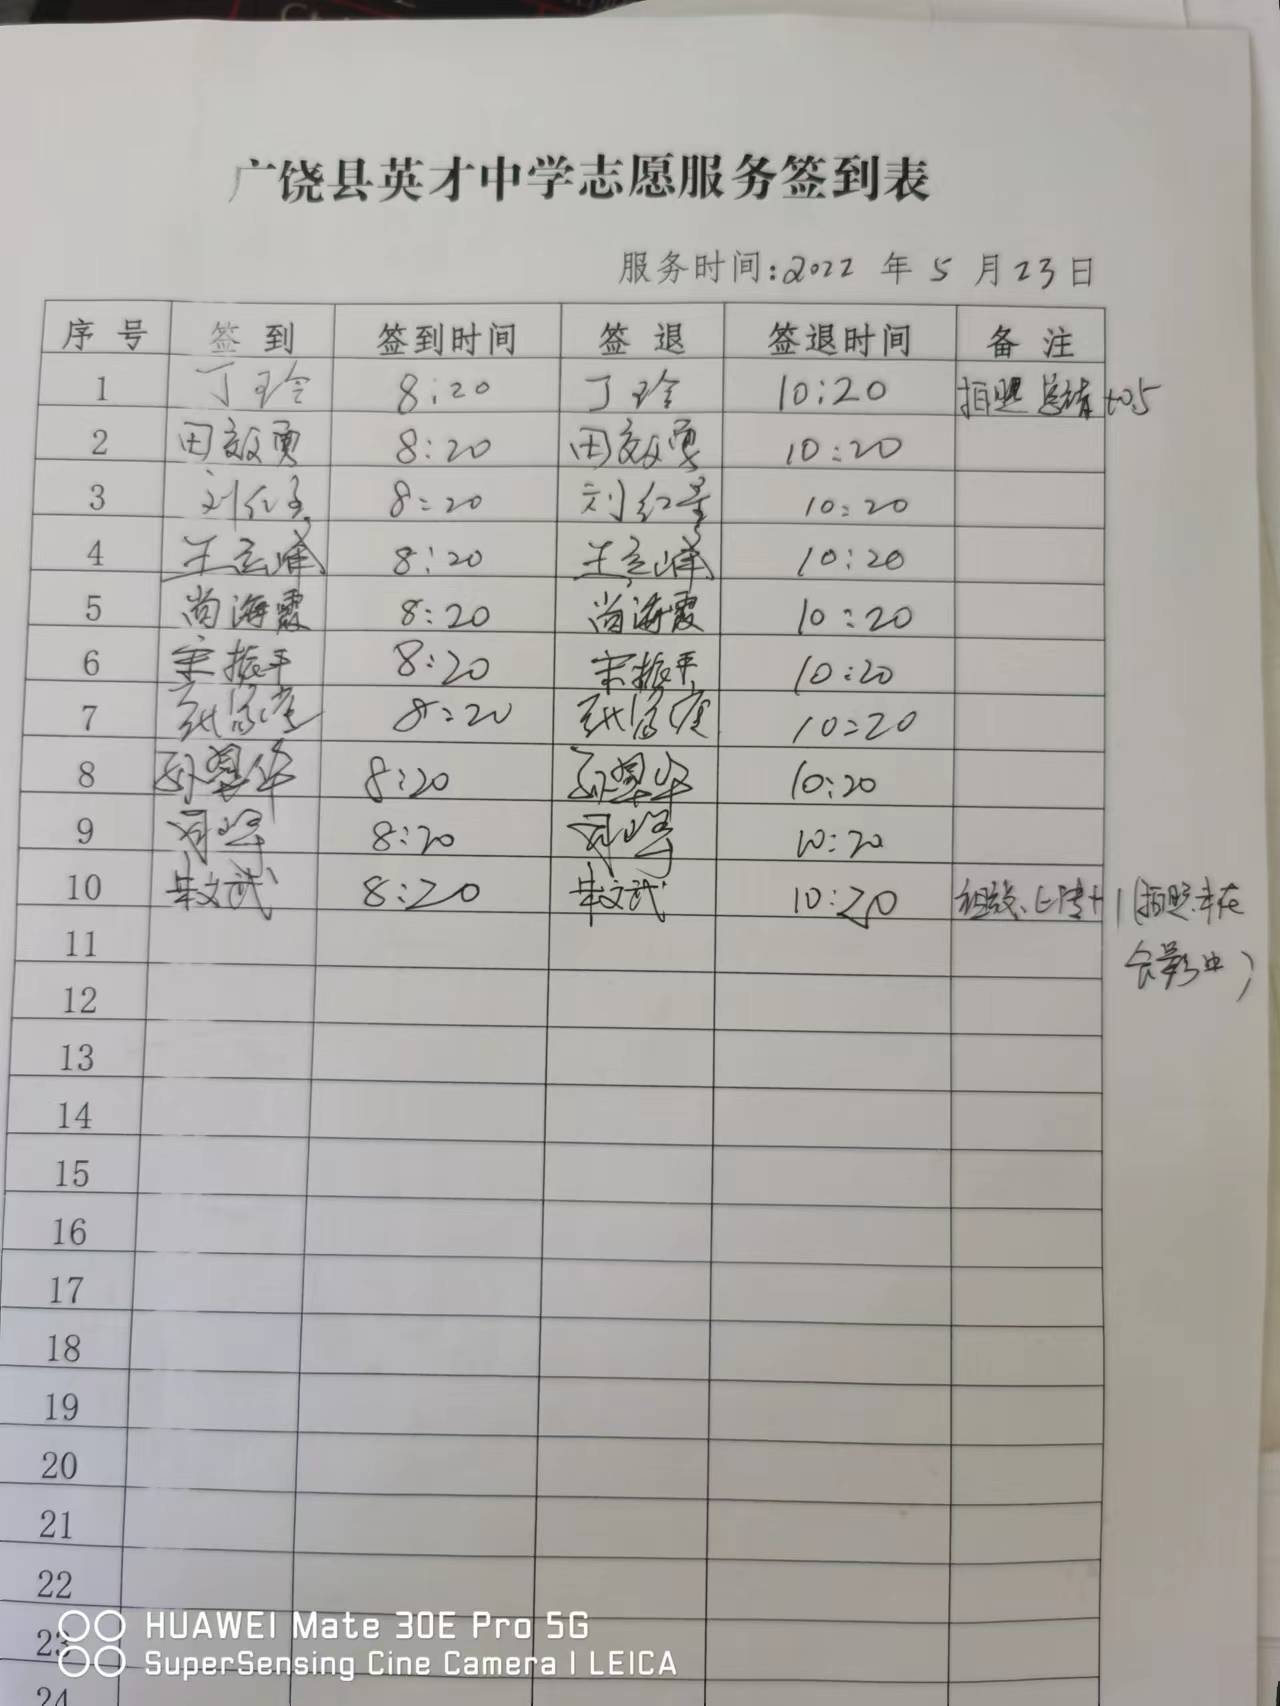 广饶县英才中学志愿服务签到表
服务时间:2022 年 5 月 23 日
序号 签到 签到时间 签退 签退时间 备注
1 丁玲 8:20 丁玲 10:20 拍照 总结 +0.5
2 田敏勇 8:20 田敏勇 10:20
3 刘红星 8:20 刘红星 10:20
4 王立峰 8:20 王立峰 10:20
5 尚海霞 8:20 尚海霞 10:20
6 宋振平 8:20 宋振平 10:20
7 8:20 10:20
8 8:20 10:20
9 8:20 10:20
10 文武 8:20 文武 10:20 组织、 +1(拍照未在
合影中)
11
12
13
14
15
16
17
18
19
20
21
22
23
24
HUAWEI Mate 30E Pro 5G
SuperSensing Cine Camera | LEICA